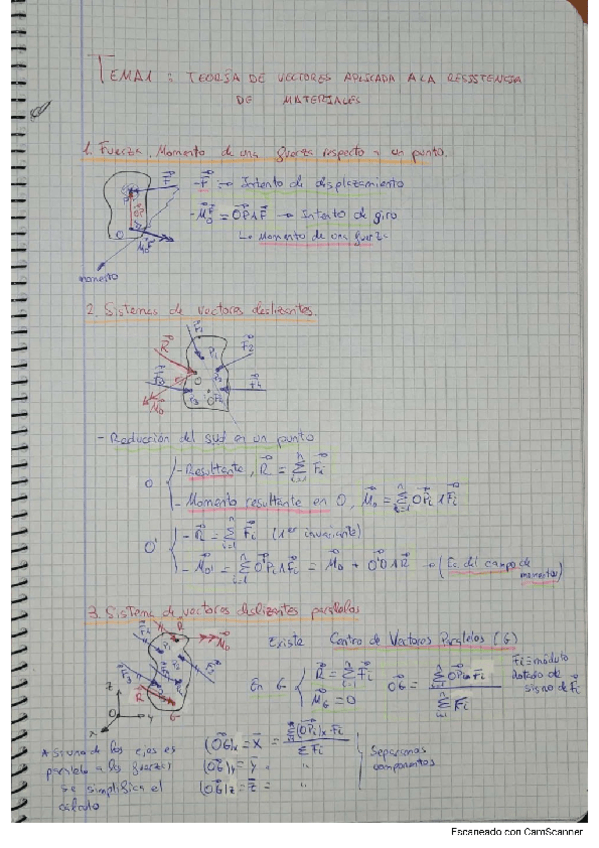 TEMA 1: TEORÍA DE VECTORES APLICADA A LA RESISTENCIA
DE MATERIALES
1. Fuerza. Momento de una fuerza respecto a un punto.
- F⃗ → Intento de desplazamiento
- M⃗o = OP⃗ ∧ F⃗ → Intento de giro
↳ Momento de una fuerza
momento
2. Sistemas de vectores deslizantes.
- Reducción del svd en un punto
O { - Resultante, R⃗ = Σ F⃗i
- Momento resultante en O, M⃗o = Σ OP⃗i ∧ F⃗i
O' { - R⃗ = Σ F⃗i (1er invariante)
- M⃗o' = Σ O'P⃗i ∧ F⃗i = M⃗o + O'O⃗ ∧ R⃗ → (Ec. del campo de momentos)
3. Sistema de vectores deslizantes paralelos
Existe Centro de Vectores Paralelos (G)
En G { R⃗ = Σ F⃗i
M⃗G = 0
OG⃗ = Σ OP⃗i · Fi / Σ Fi
Fi = módulo
dotado de
signo de F⃗i
* Si uno de los ejes es
paralelo a las fuerzas
se simplifica el
cálculo
(OG⃗)x = X = Σ (OP⃗i)x · Fi / Σ Fi
(OG⃗)y = Y = "
(OG⃗)z = Z = "
Separamos
componentes
Escaneado con CamScanner